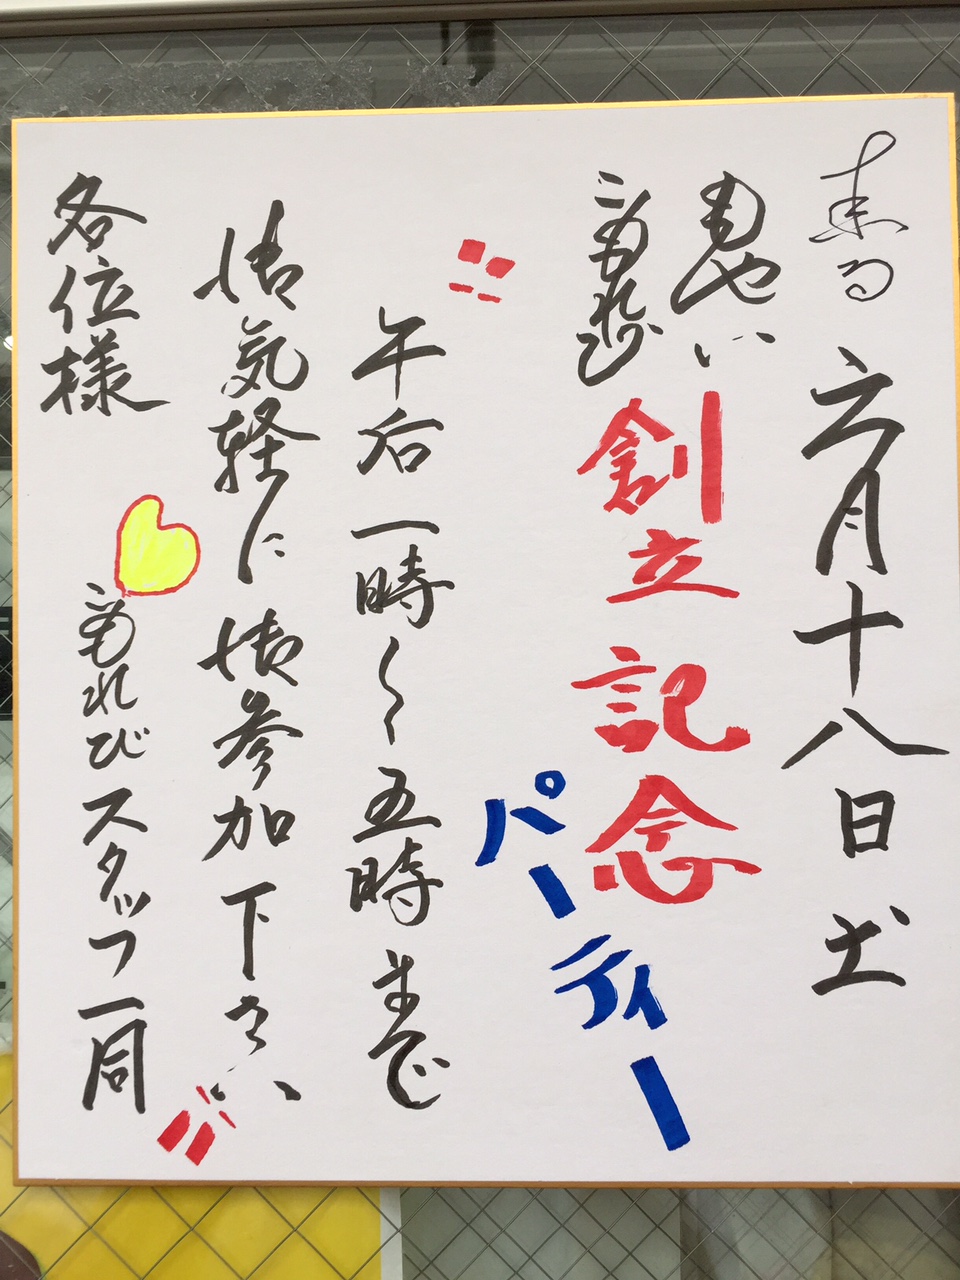 来る 六月十八日 土
もやい
こもれび
創立記念
パーティー!!
午后一時〜五時まで
御気軽に御参加下さい!!
各位様
こもれびスタッフ一同